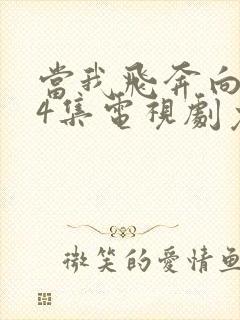 當我飛奔向
4集電視劇
微笑的愛情魚